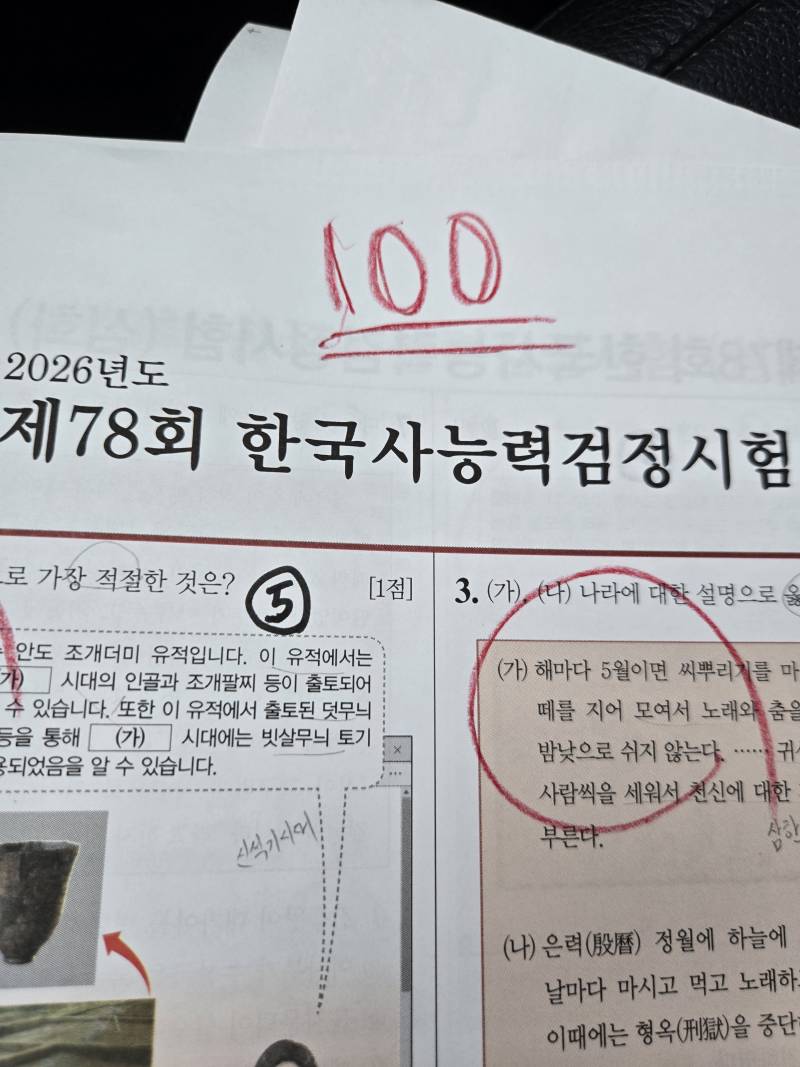 100
2026년도
제78회 한국사능력검정시험
로 가장 적절한 것은? ⑤ [1점]
안도 조개더미 유적입니다. 이 유적에서는
(가) 시대의 인골과 조개팔찌 등이 출토되어
수 있습니다. 또한 이 유적에서 출토된 덧무늬
등을 통해 (가) 시대에는 빗살무늬 토기
용되었음을 알 수 있습니다.
신석기시대
3. (가), (나) 나라에 대한 설명으로 옳
(가) 해마다 5월이면 씨뿌리기를 마
떼를 지어 모여서 노래와 춤을
밤낮으로 쉬지 않는다. …… 귀
사람씩을 세워서 천신에 대한
부른다.
삼한
(나) 은력(殷曆) 정월에 하늘에
날마다 마시고 먹고 노래하
이때에는 형옥(刑獄)을 중단